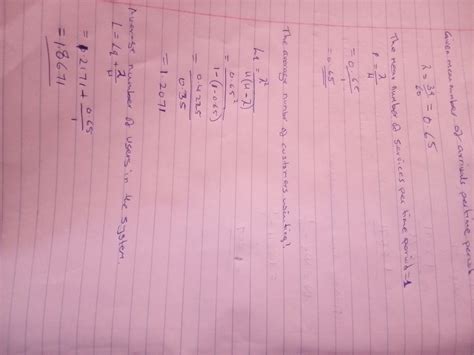 Given mean number of arrivals per time period
λ = 39/60 = 0.65
The mean number of services per time period = 1
P = λ/μ
= 0.65/1
= 0.65
The average number of customers waiting:
Lq = λ²/μ(μ-λ)
= 0.65²/1-(1-0.65)
= 0.4225/0.35
= 1.2071
Average number of users in the system.
L = Lq + λ/μ
= 1.2171 + 0.65/1
= 1.8671